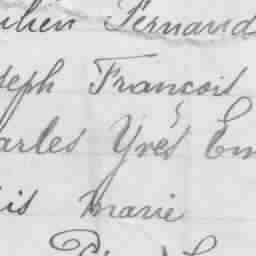 ulien Fernand
seph François
arles Yves Em
is marie